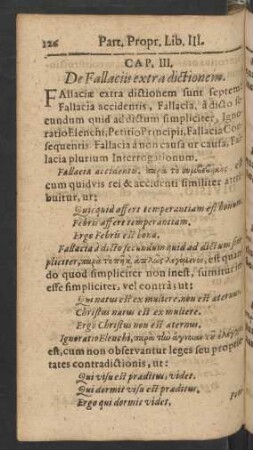 126 Part. Propr. Lib. III.
CAP. III.
De Fallaciis extra dictionem.
FAllaciæ extra dictionem sunt septem:
Fallacia accidentis, Fallacia, à dicto se-
cundum quid ad dictum simpliciter, Igno-
ratio Elenchi, Petitio Principii, Fallacia Con-
sequentis Fallacia à non causa ut causa, Fal-
lacia plurium Interrogationum.
Fallacia accidentis, παρὰ τὸ συμβεβηκὸς, est
cum quidvis rei & accidenti similiter attri-
buitur, ut;
Quicquid affert temperantiam est bonum.
Febris affert temperantiam.
Ergo Febris est bona.
Fallacia à dicto secundum quid ad dictum sim-
pliciter, παρὰ τὸ πῆ, ἁπλῶς λεγόμενον, est quan-
do quod simpliciter non inest, sumitur in-
esse simpliciter, vel contrà; ut:
Qui natus est ex muliere, non est æternus.
Christus natus est ex muliere.
Ergo Christus non est æternus.
Ignoratio Elenchi, παρὰ τὴν ἄγνοιαν τοῦ ἐλέγχου
est, cum non observantur leges seu proprie-
tates contradictionis, ut:
Qui visu est præditus, videt.
Qui dormit visu est præditus.
Ergo qui dormit videt.